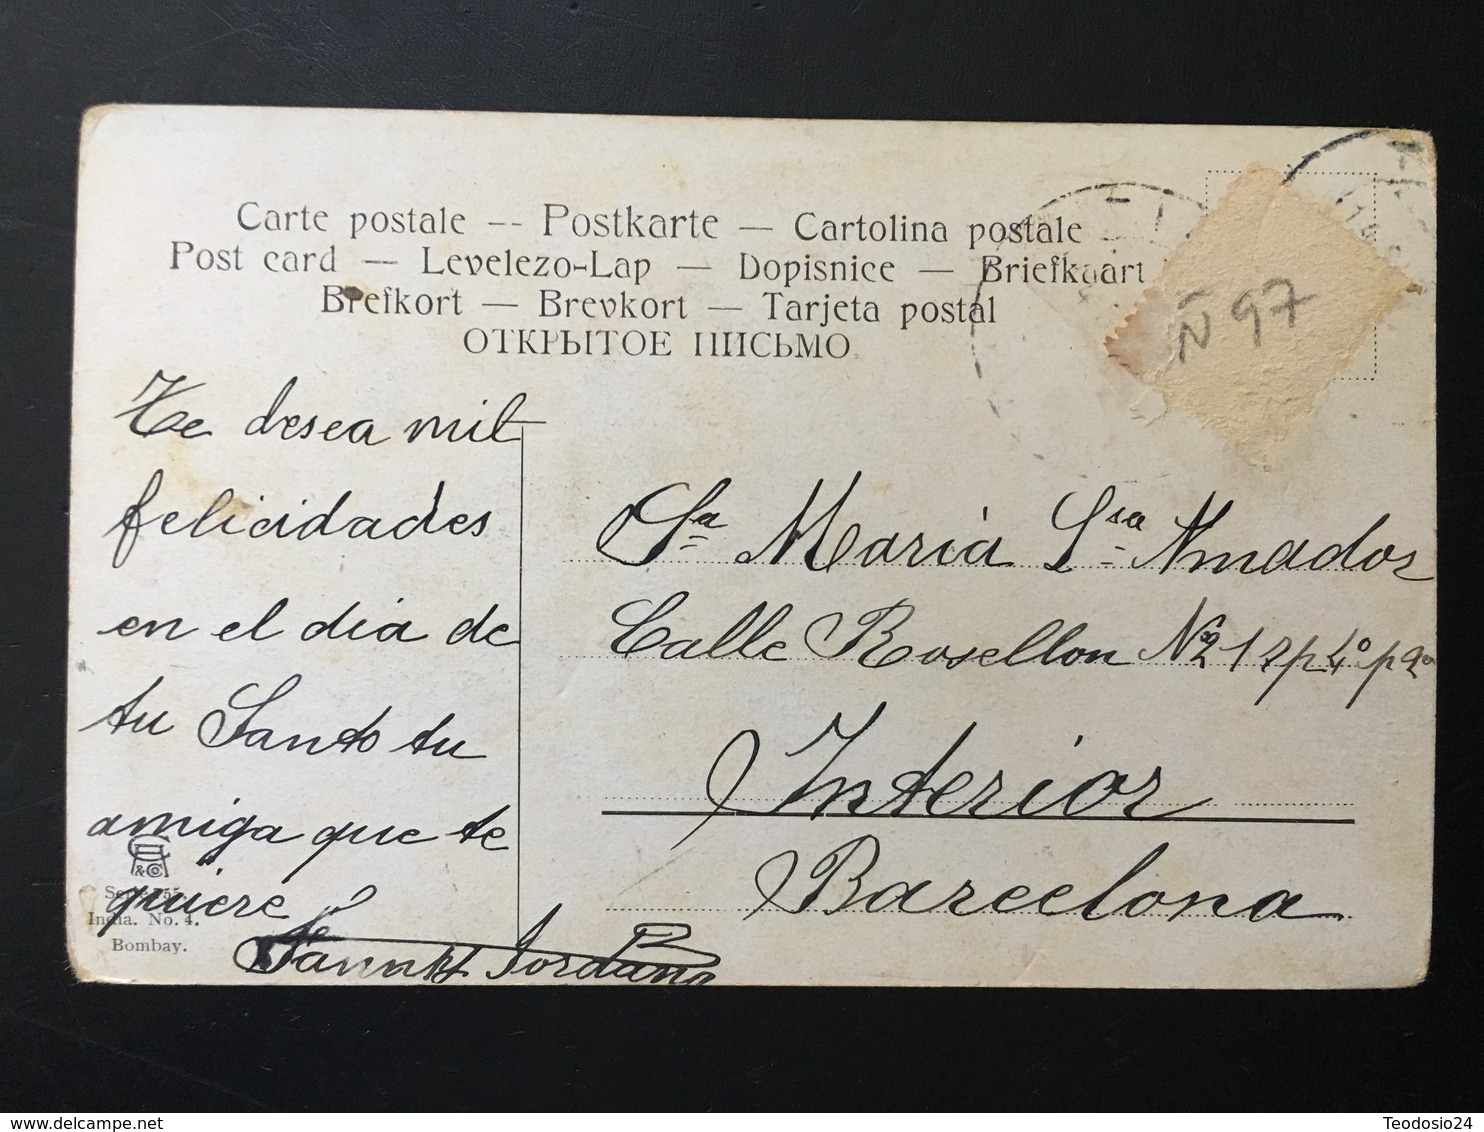 Carte postale -- Postkarte — Cartolina postale
Post card — Levelezo-Lap — Dopisnice — Briefkaart
Brefkort — Brevkort — Tarjeta postal
ОТКРЫТОЕ ПИСЬМО
Ñ 97
Te desea mil
felicidades
en el dia de
tu Santo tu
amiga que te
quiere
Jordano
& Co
Serie 755
India. No. 4.
Bombay.
Sª Maria Amador
Calle Rosellon Nº 4º p 2ª
Interior
Barcelona
delcampe.net
Teodosio24